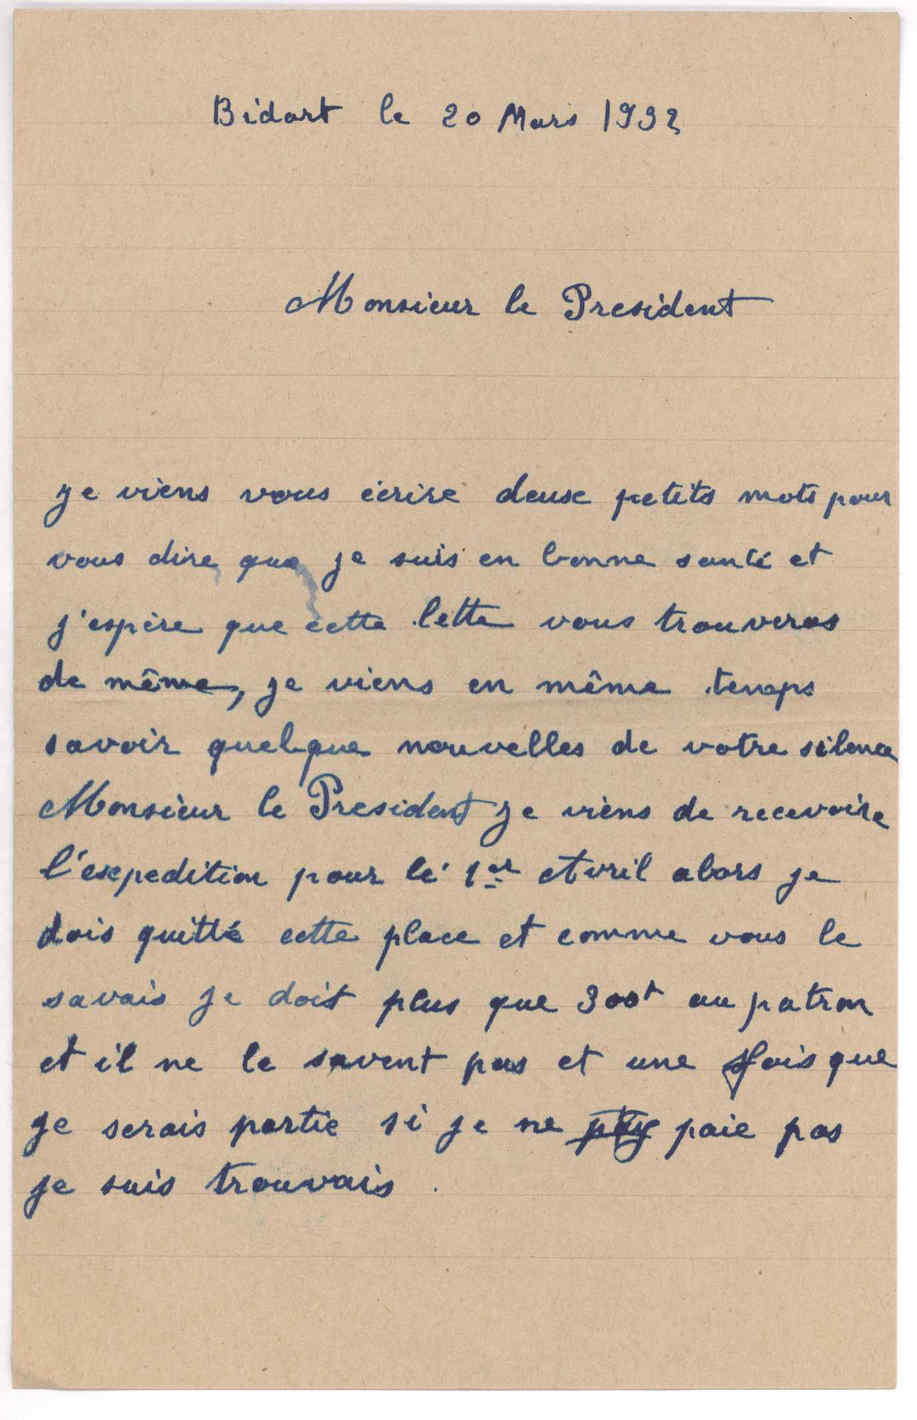 Bidart le 20 Mars 1932
Monsieur le President
je viens vous écrire deux petits mots pour
vous dire que je suis en bonne santé et
j'espère que cette lette vous trouveras
de même, je viens en même temps
savoir quelque nouvelles de votre silence
Monsieur le President je viens de recevoire
l'expedition pour le 1er Avril alors je
dois quitté cette place et comme vous le
savais je doit plus que 300f au patron
et il ne le savent pas et une fois que
je serais partie si je ne paie pas
je suis trouvais.